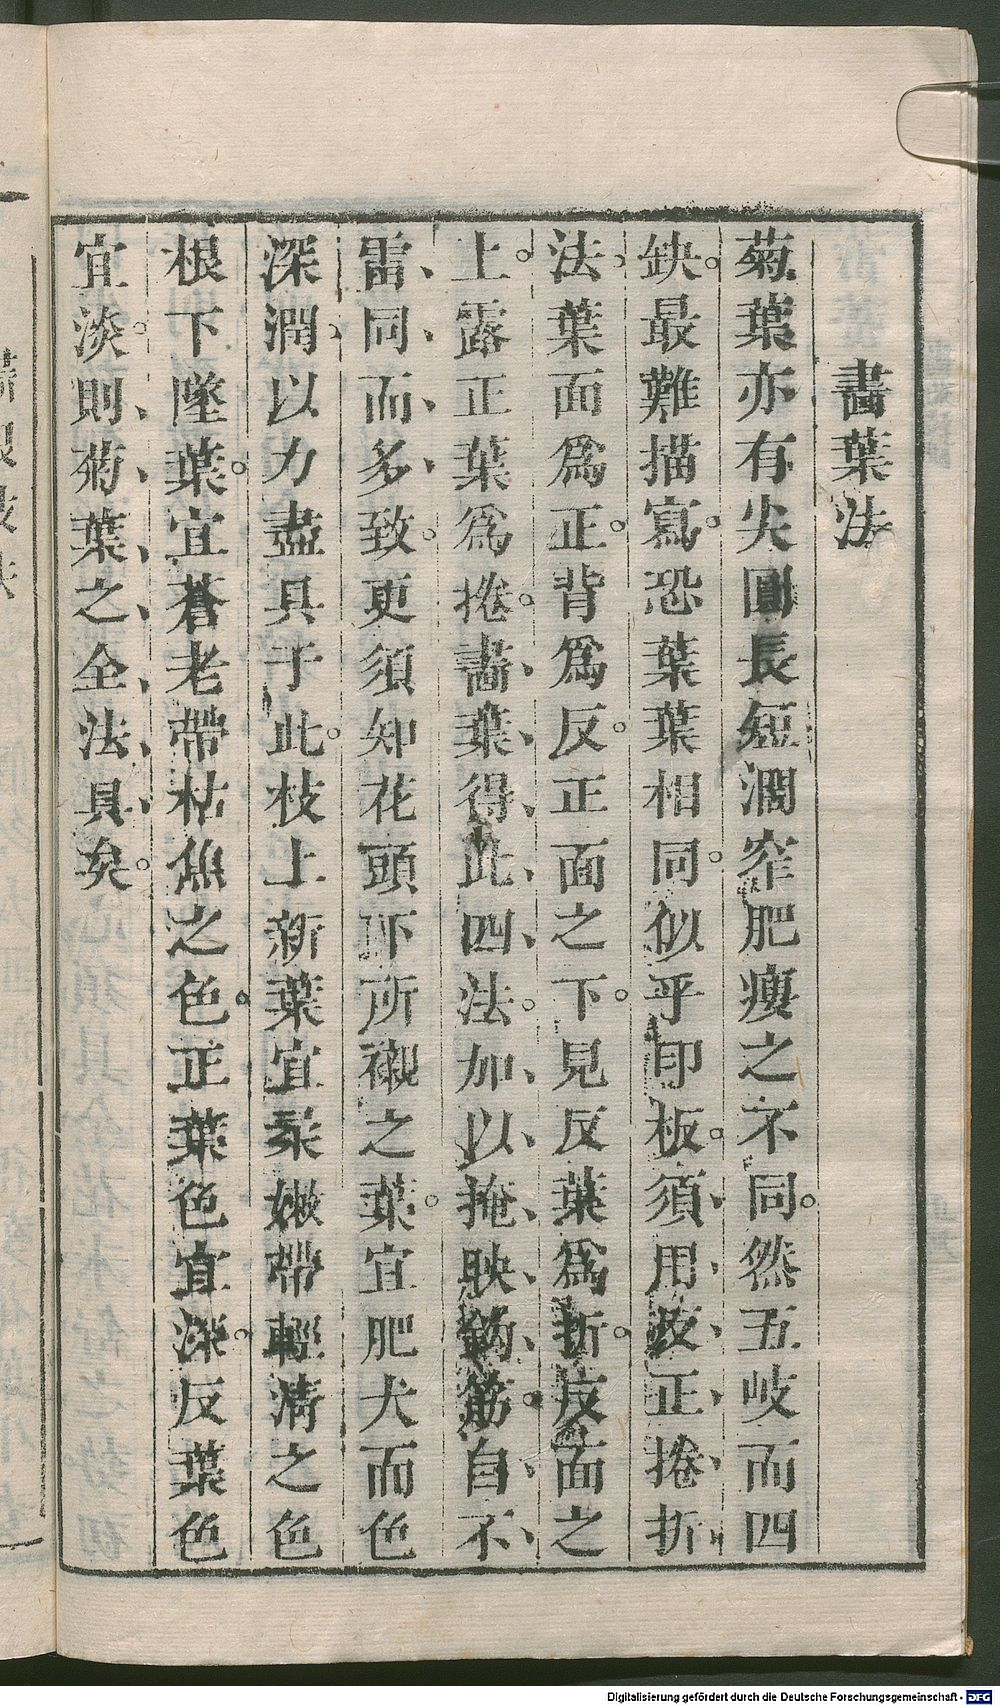 畫葉法
菊葉亦有尖圓長短濶窄肥瘦之不同。然五岐而四
缺。最難描寫。恐葉葉相同。似乎印板。須用反正捲折
法。葉面爲正。背爲反。正面之下。見反葉爲折。反面之
上。露正葉爲捲。畫葉得此四法。加以掩映鈎筋。自不
雷同而多致。更須知花頭下所襯之葉。宜肥大而色
深潤。以力盡具于此。枝上新葉宜柔嫩帶輕淸之色
根下墜葉。宜蒼老帶枯焦之色。正葉色宜深。反葉色
宜淡。則菊葉之全法具矣。
Digitalisierung gefördert durch die Deutsche Forschungsgemeinschaft - DFG